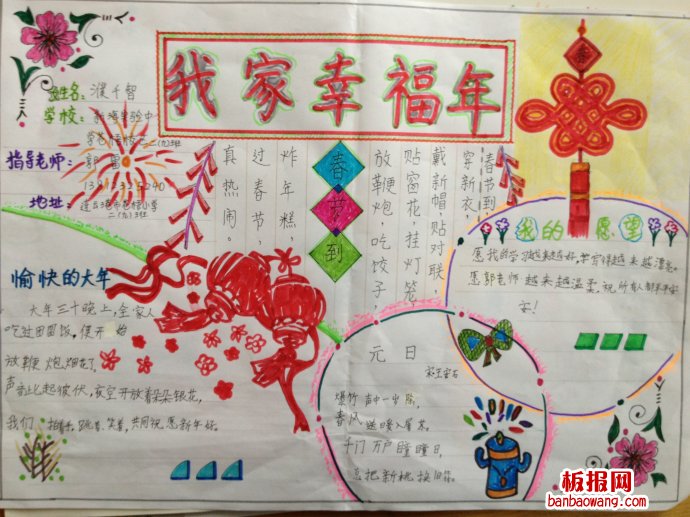 我家幸福年
姓名：濮千智
学校：
指导老师：郭雷
地址：
二(九)班
春节到
春节到，
穿新衣，
戴新帽，贴对联，
贴窗花，挂灯笼，
放鞭炮，吃饺子，
炸年糕，
过春节，
真热闹。
我的愿望
愿我的学习越来越好，字写得越来越漂亮。
愿郭老师越来越温柔，祝所有人都平平安
安！
愉快的大年
大年三十晚上，全家人
吃过团圆饭，便开始
放鞭炮、烟花了。
声音此起彼伏，夜空开放着朵朵银花，
我们拍着手，跳着，笑着，共同祝愿新年好。
元日
宋王安石
爆竹声中一岁除，
春风送暖入屠苏。
千门万户曈曈日，
总把新桃换旧符。
板报网
banbaowang.com